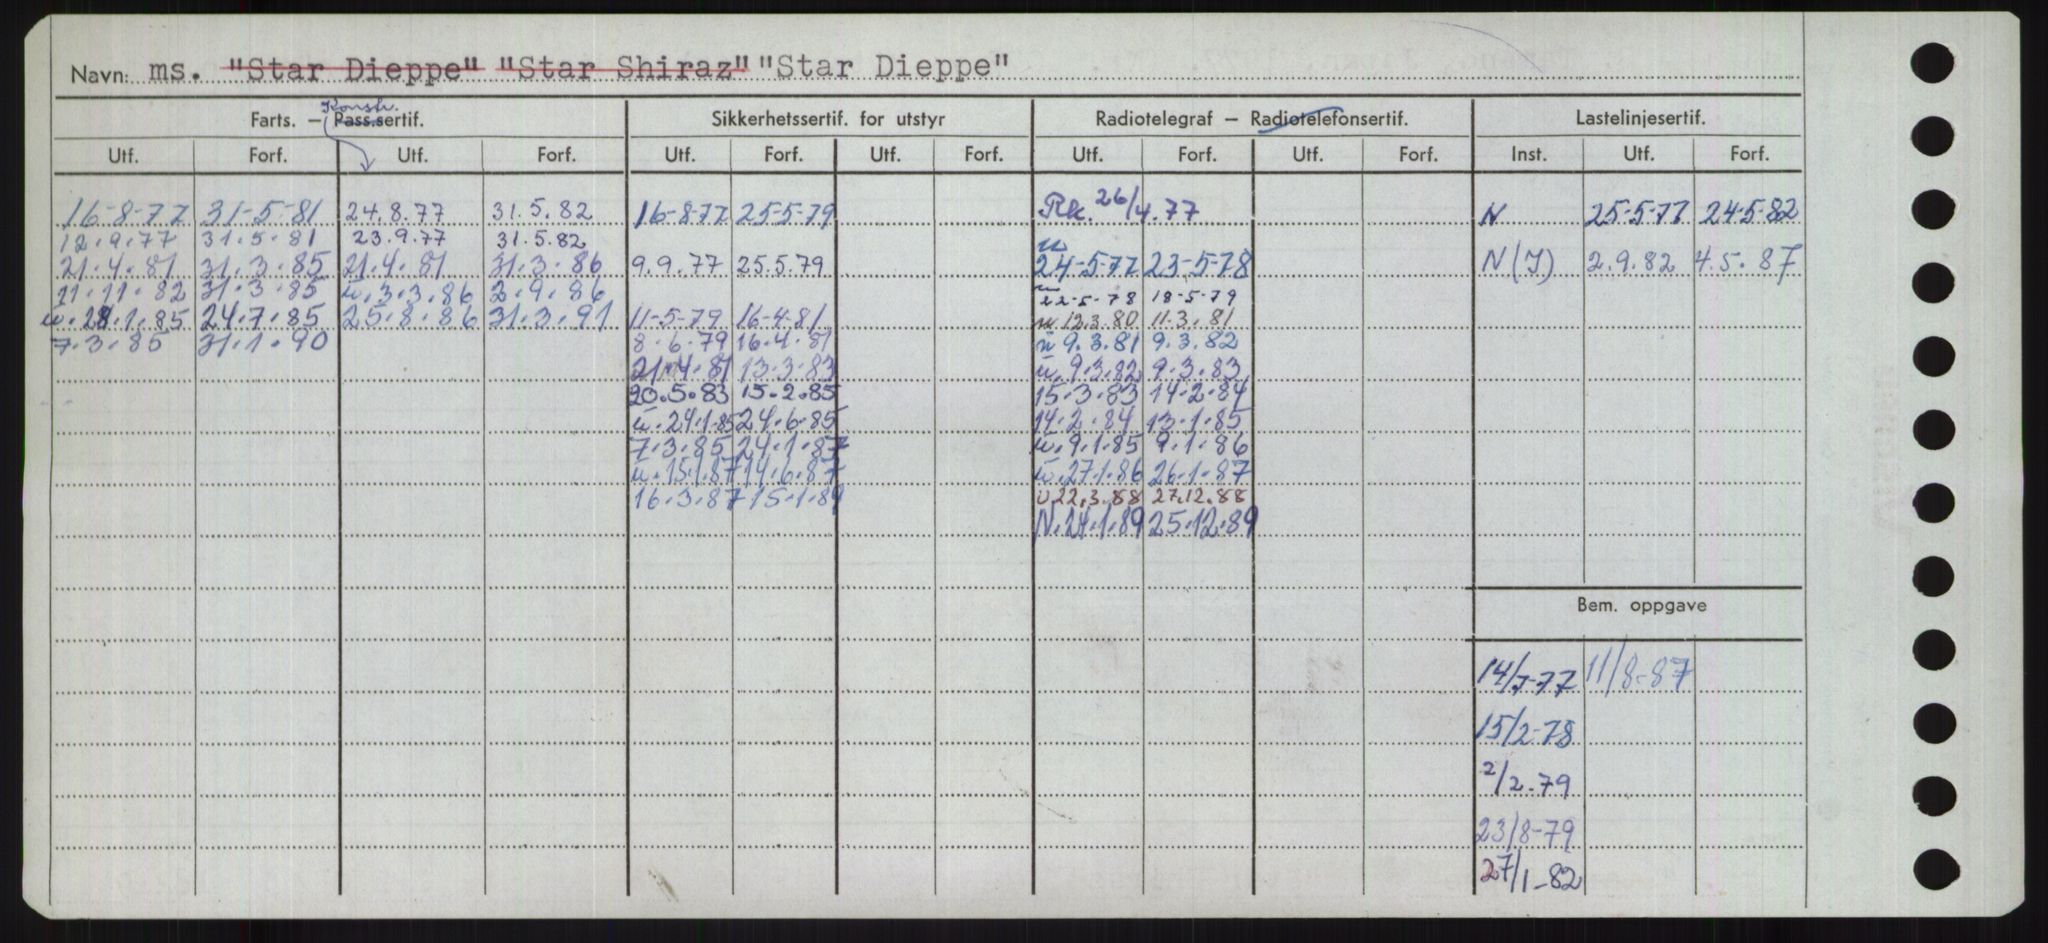 Navn: ms. "Star Dieppe" "Star Shiraz" "Star Dieppe"
Konstr.
Farts. — Pass.sertif. Sikkerhetssertif. for utstyr Radiotelegraf — Radiotelefonsertif. Lastelinjesertif.
Utf. Forf. Utf. Forf. Utf. Forf. Utf. Forf. Utf. Forf. Utf. Forf. Inst. Utf. Forf.
16-8-77 31-5-81 24.8.77 31.5.82 16-8-77 25-5-79 Rk. 26/4.77 N 25-5-77 24-5-82
12.9.77 31.5.81 23.9.77 31.5.82 u
21.4.81 31.3.85 21.4.81 31.3.86 9.9.77 25.5.79 24-5-77 23-5-78 N(I) 2.9.82 4.5.87
11.11.82 31.3.85 u.3.3.86 2.9.86 u 22-5-78 18-5-79
u.28.1.85 24.7.85 25.8.86 31.3.91 11-5-79 16-4-81 u 12.3.80 11.3.81
7.3.85 31.1.90 8.6.79 16.4.81 u 9.3.81 9.3.82
21.4.81 13.3.83 u.9.3.82 9.3.83
20.5.83 15.2.85 15.3.83 14.2.84
u.24.1.85 24.6.85 14.2.84 13.1.85
7.3.85 24.1.87 u.9.1.85 9.1.86
u.15.1.87 14.6.87 u.27.1.86 26.1.87
16.3.87 15.1.89 u 22.3.88 27.12.88
N.24.1.89 25.12.89
Bem. oppgave
14/7-77 11/8-87
15/2-78
2/2-79
23/8-79
27/1-82